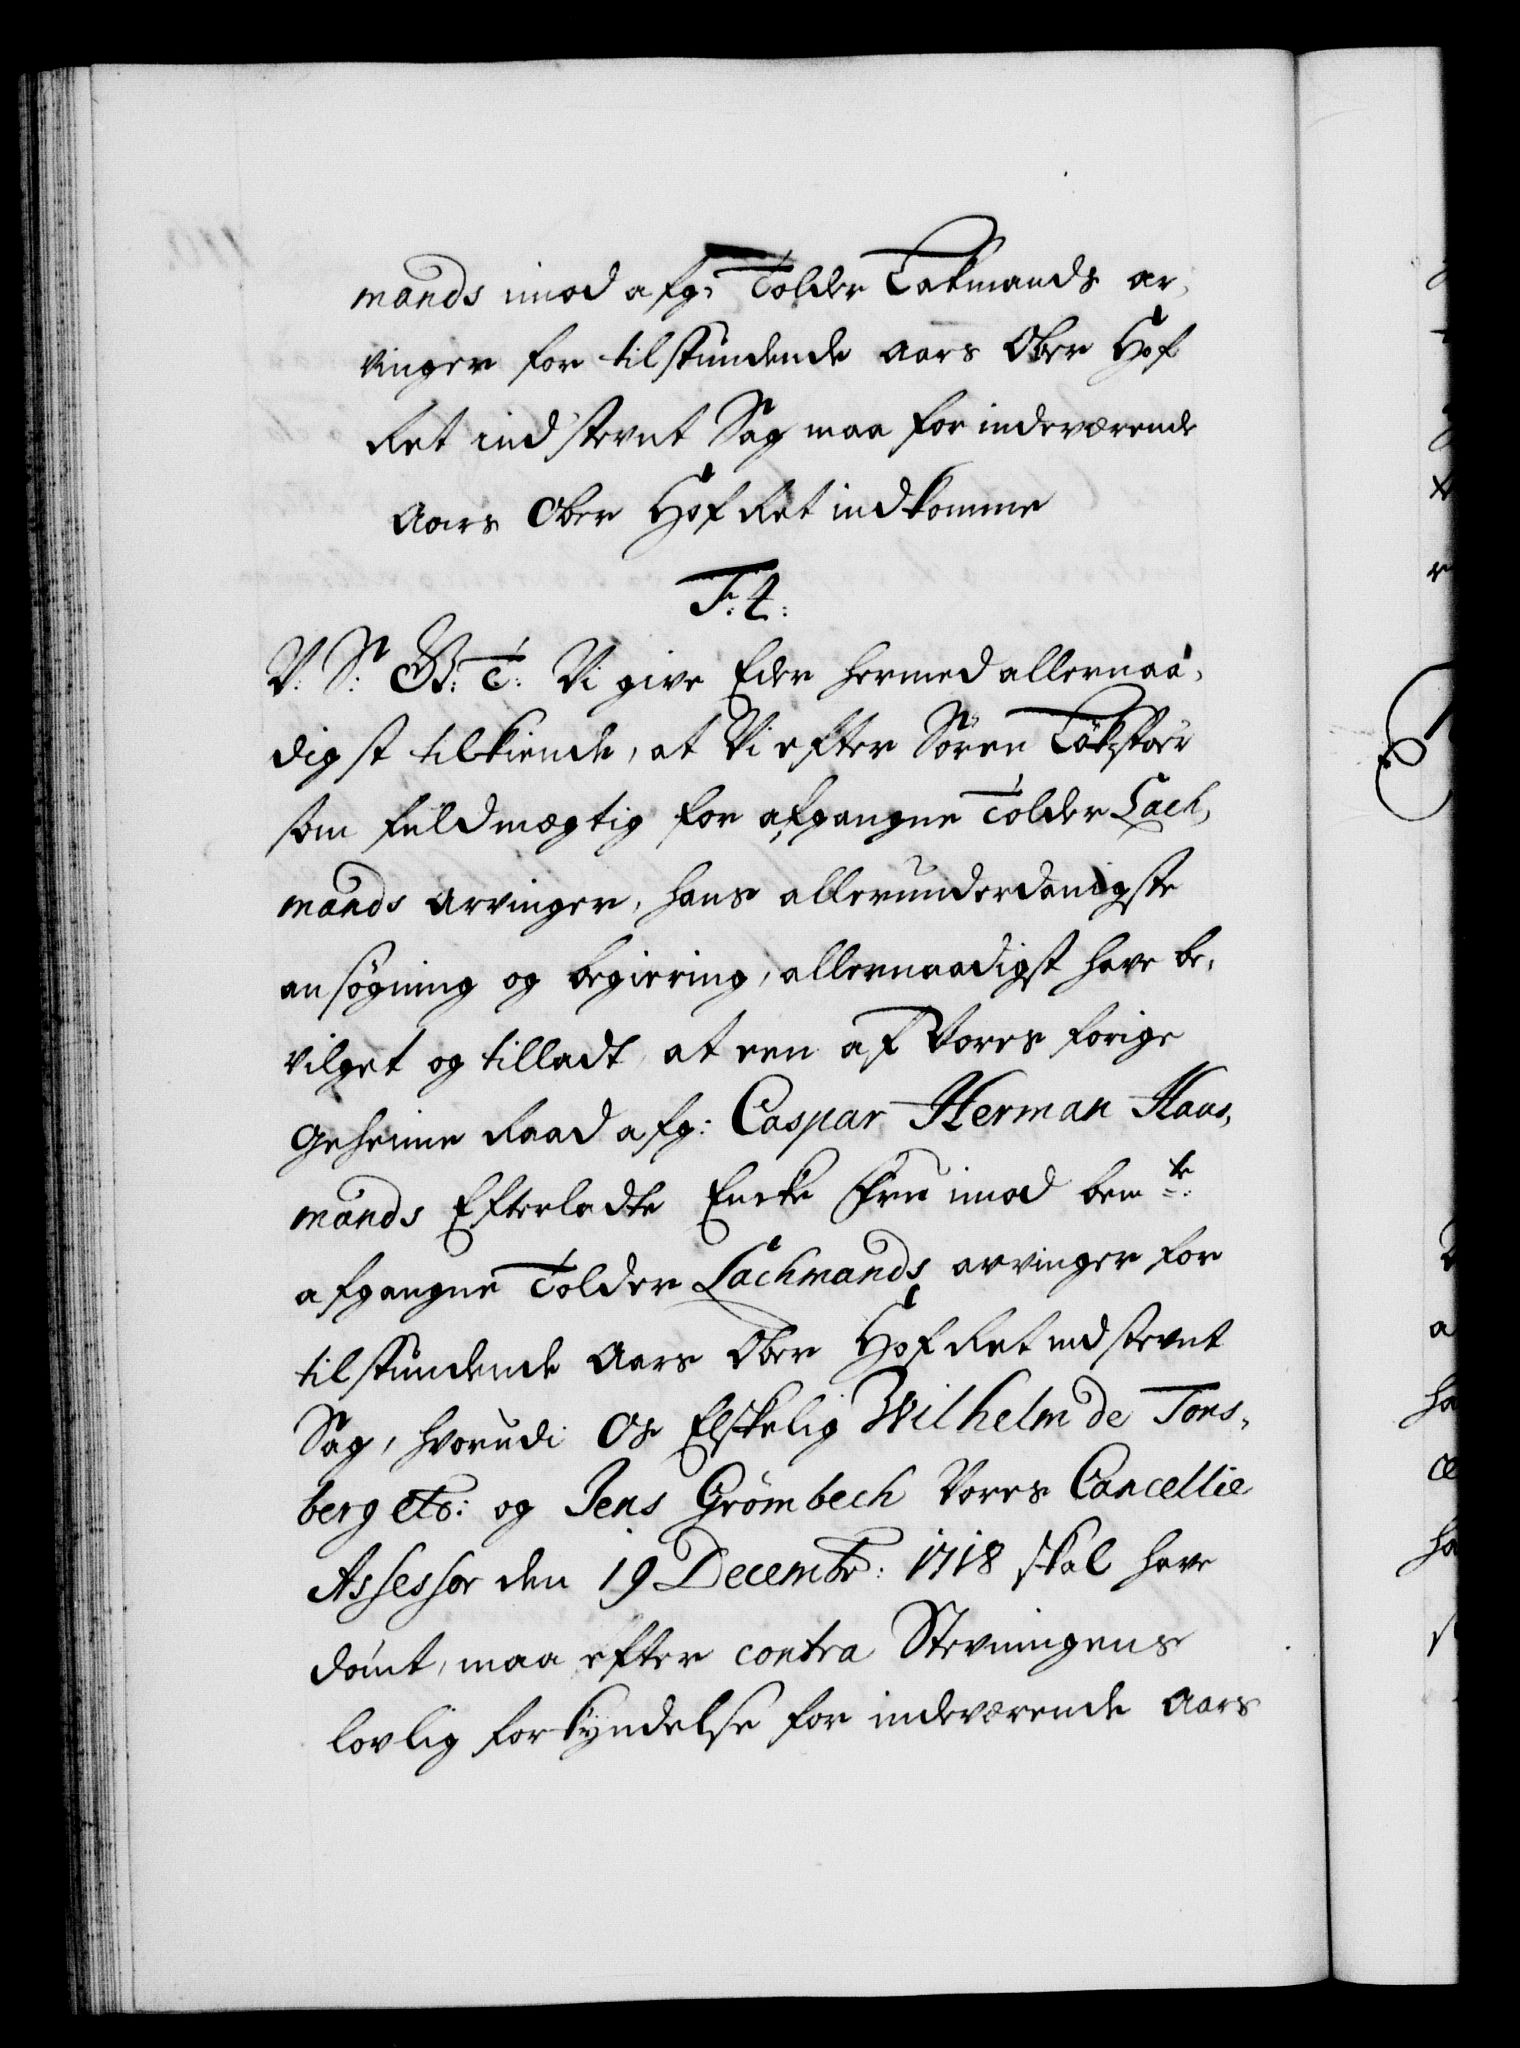 mands imod afg: Tolder Lakmands ar,
vinger for tilstundende aars Ober Hof
Ret indstevnt Sag maa for indeværende
Aars Ober Hof Ret indkomme
F: 4:
V: S: G: T: Vi give Eder hermed allernaa,
digst tilkiende, at Vi efter Sören Lökstöer
som fuldmægtig for afgangne Tolder Lach,
mands arvinger, hans allerunderdanigste
ansøgning og begiering, allernaadigst have be,
vilget og tilladt, at een af Vores forige
Geheime Raad afg: Caspar Herman Haus,
mands Efterladte Encke Fru imod bemte:
afgangne Tolder Lachmands arvinger for
tilstundende Aars Ober Hof Ret indstevnt
Sag, hvorudi Os Elskelig Wilhelm de Tons,
berg etc: og Jens Grömbech Vores Cancellie
Assessor den 19 Decembr: 1718 skal have
dömt, maa efter contra Stevningens
lovlig forkyndelse for indeværende Aars